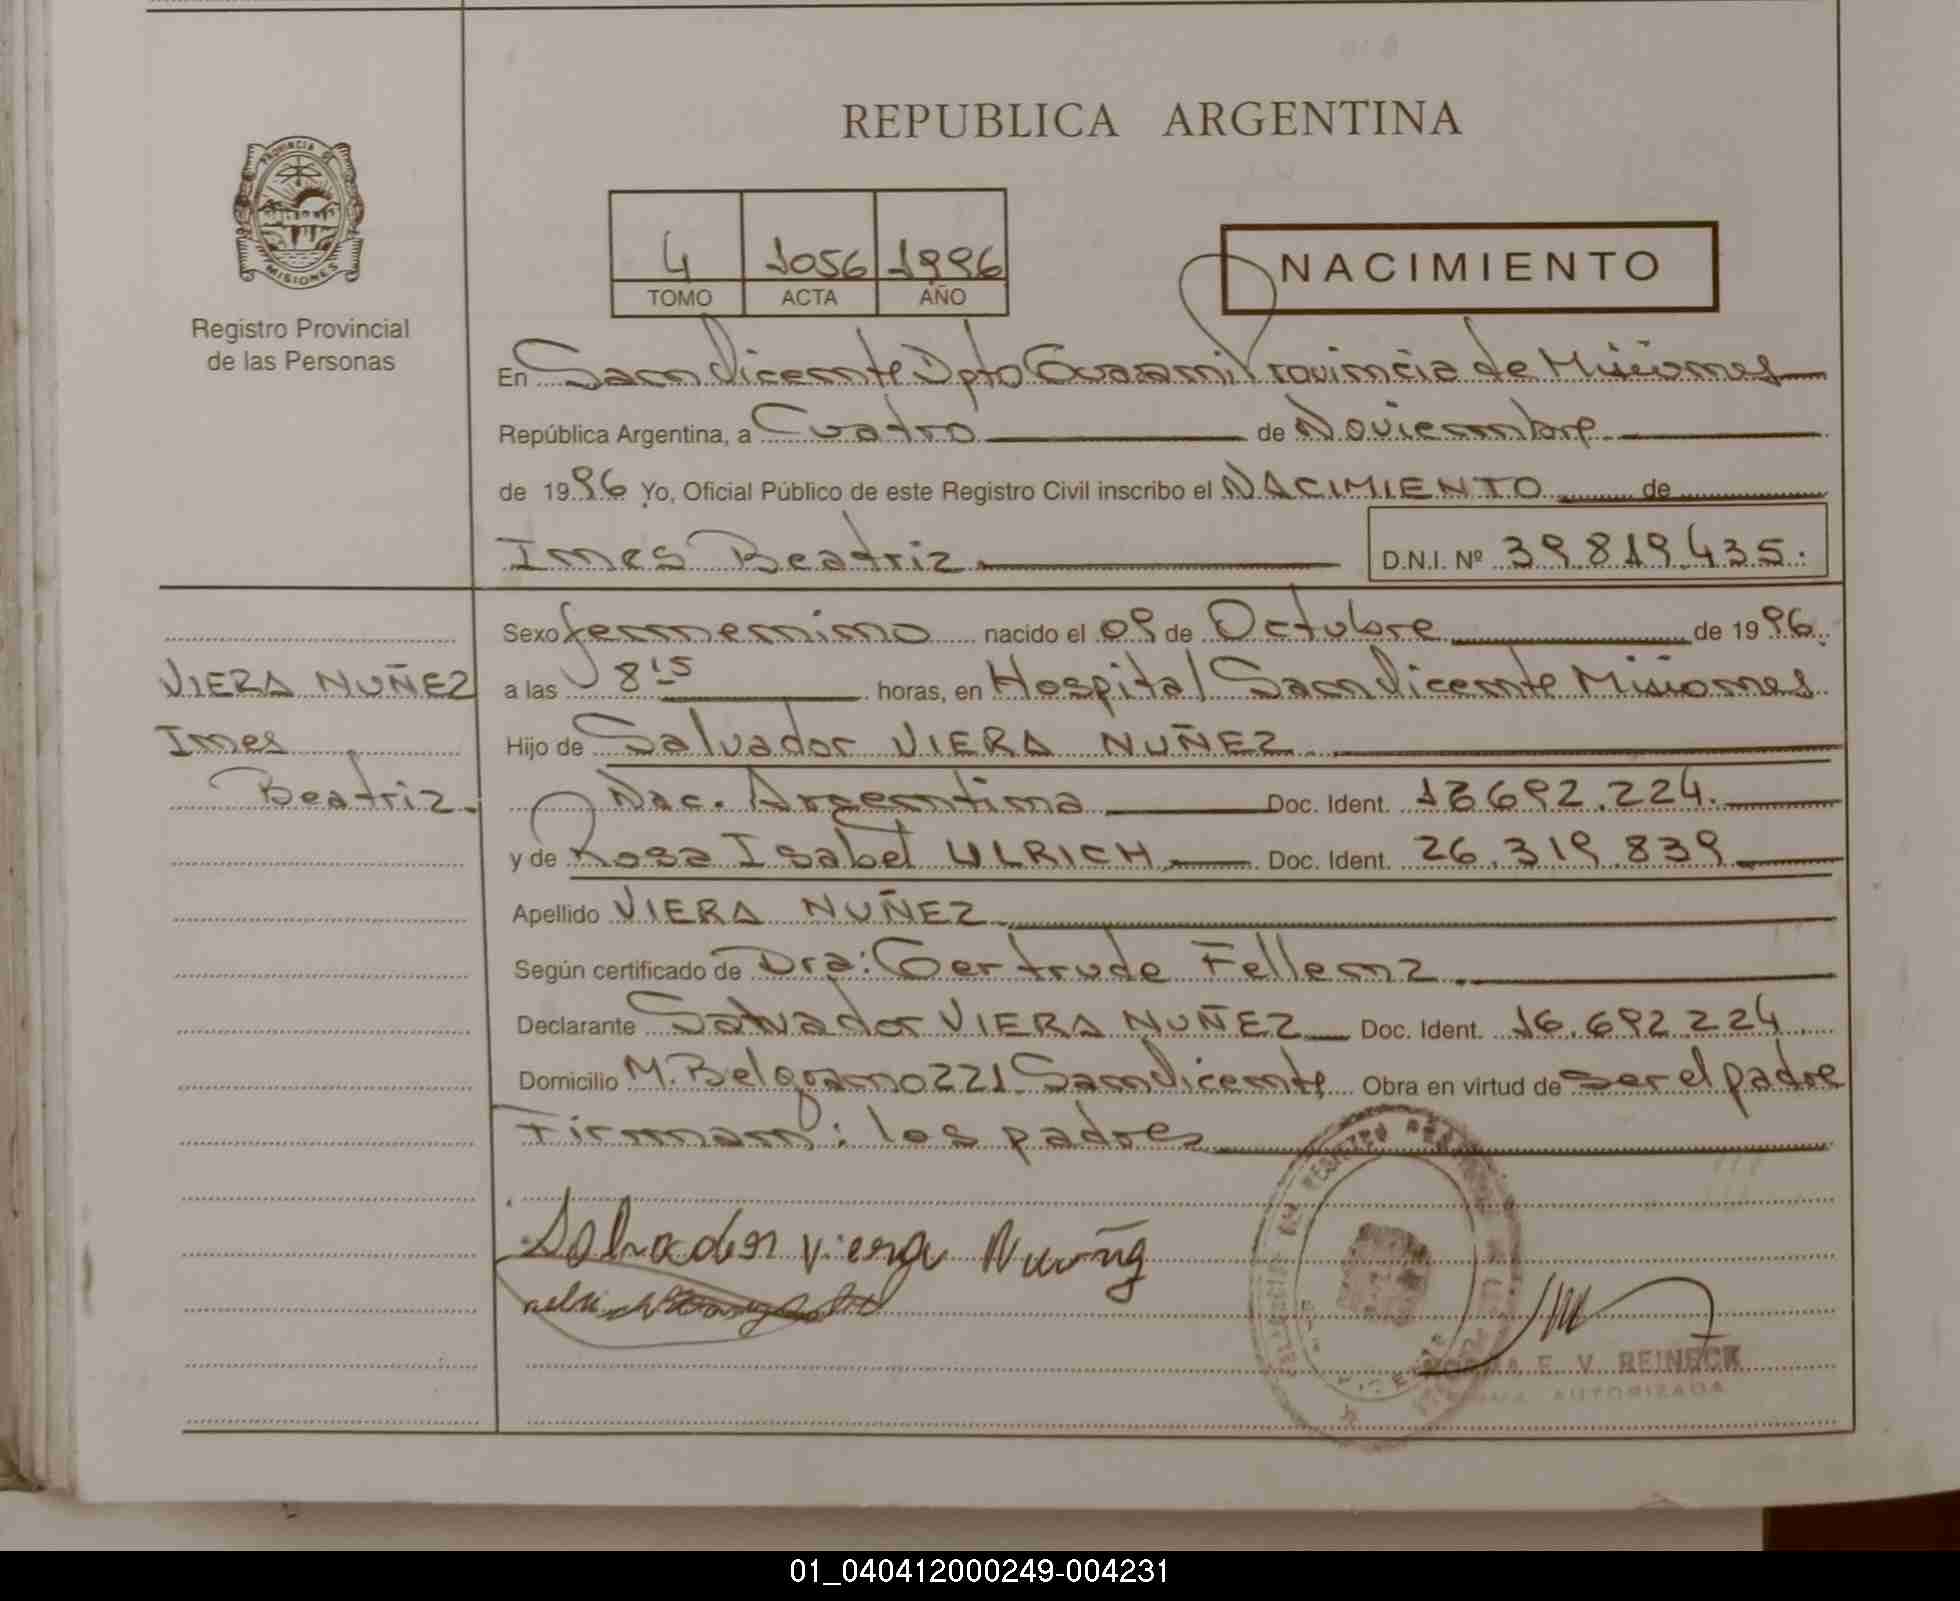 REPUBLICA ARGENTINA
PROVINCIA DE
MISIONES
Registro Provincial
de las Personas
4 1056 1996
TOMO ACTA AÑO
NACIMIENTO
En San Vicente Dpto Guarani Provincia de Misiones
República Argentina, a Cuatro de Noviembre
de 1996 Yo, Oficial Público de este Registro Civil inscribo el NACIMIENTO de
Ines Beatriz D.N.I. Nº 39.819.435.
Sexo femenino nacido el 09 de Octubre de 1996.
VIERA NUÑEZ
Ines
Beatriz.
a las 8 15 horas, en Hospital San Vicente Misiones.
Hijo de Salvador VIERA NUÑEZ.
Nac. Argentina Doc. Ident. 692.224.
y de Rosa Isabel ULRICH Doc. Ident. 26.319.839
Apellido VIERA NUÑEZ
Según certificado de Dra: Gertrude Fellenz
Declarante Salvador VIERA NUÑEZ Doc. Ident. 16.692.224
Domicilio M. Belgrano 221 San Vicente, Obra en virtud de ser el padre
Firman: los padres
Salvador Viera Nuñez
NORMA E. V. REINECK
AUTORIZADA
01_040412000249-004231